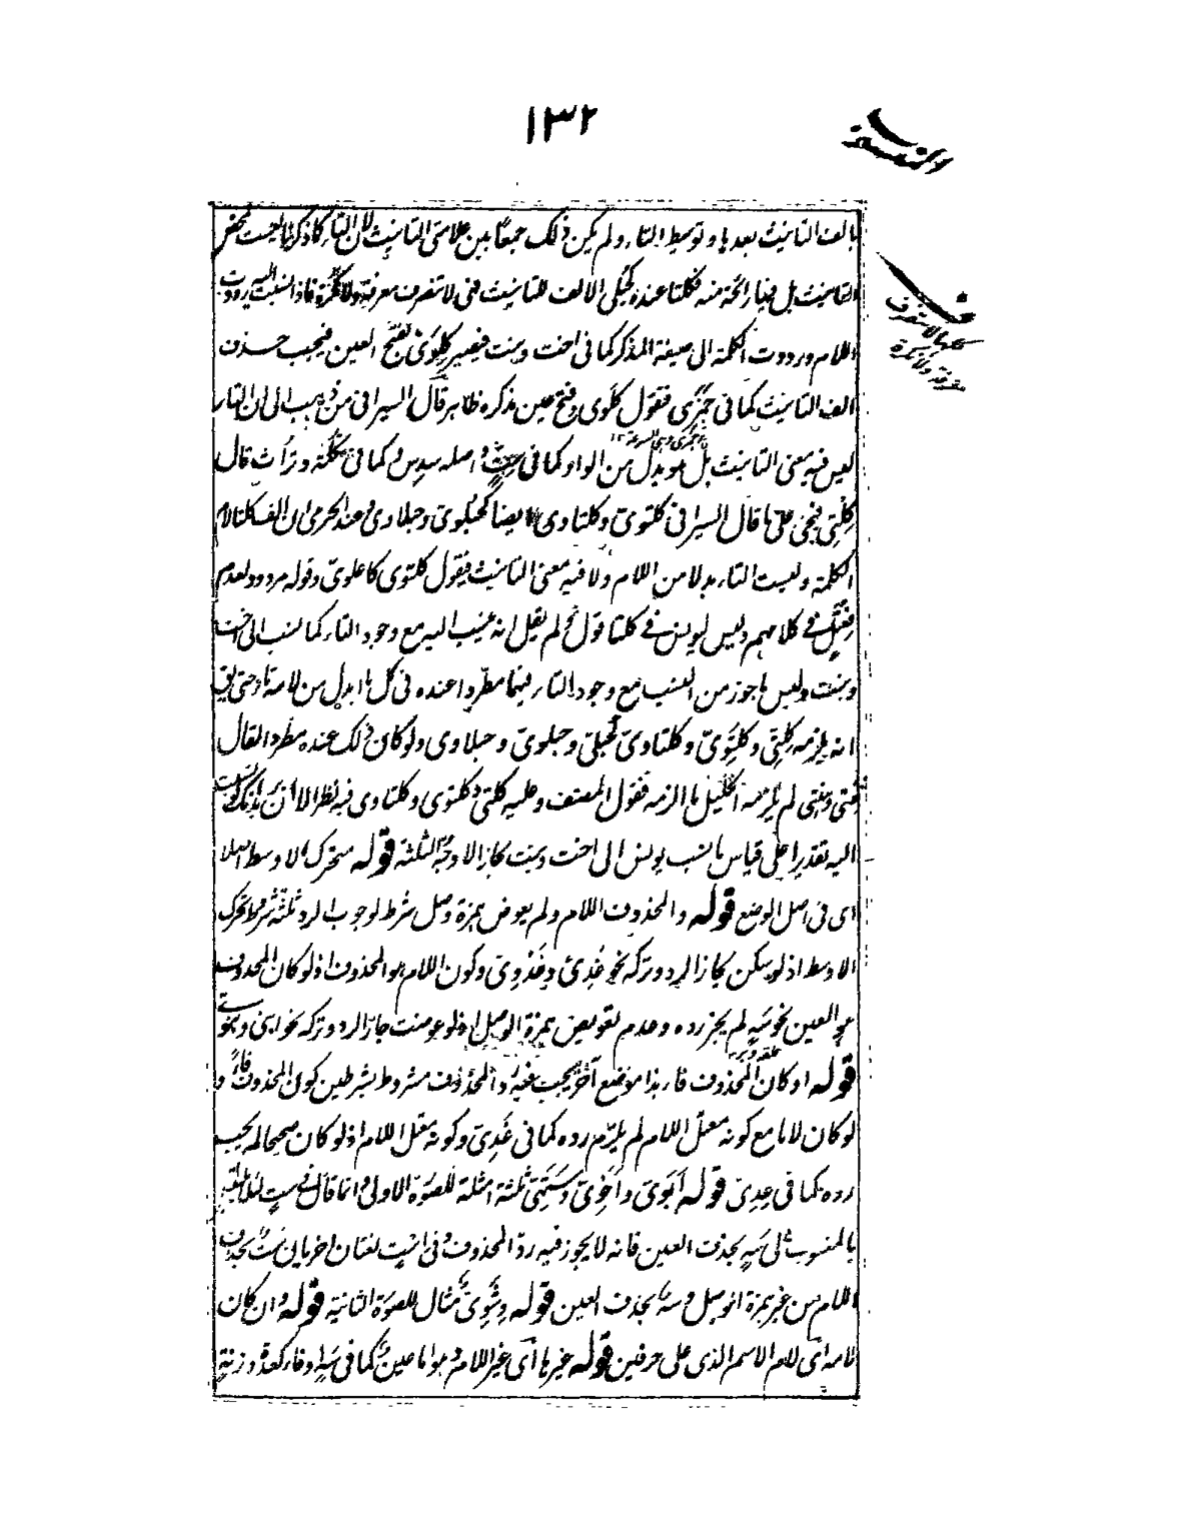 ١٣٢
المنسوب
بالف التانيث بعدها وتوسيط التاء ولم يكن ذلك جمعا بين علامتى التانيث لان التاء كما ذكرنا ليست لمحض
التانيث بل فيها رائحة منه فكلتا عنده كحبلى الالف للتانيث فهى لا تنصرف معرفة ولا نكرة فاذا نسبت اليه رددت
اللام ورددت الكلمة الى صيغة المذكر كما فى اخت وبنت فيصير كلوى بفتح العين فيجب حذف
الف التانيث كما فى جمزى فتقول كلوى وفتح عين مذكره ظاهر قال السيرافى من ذهب الى ان التاء
ليس فيه معنى التانيث بل هو بدل من الواو كما فى ست واصله سدس وكما فى تكلة وتراث قال
كلتى فيجئ على ما قال السيرافى كلتوى وكلتاوى ايضا كحبلوى وحبلاوى وعند الجرمى ان الف كلتا لام
الكلمة وليست التاء بدلا من اللام ولا فيه معنى التانيث فيقول كلتوى كاعلوى وقوله مردود لعدم
فعتل فى كلامهم وليس ليونس فى كلتا قول لم يقل انه ينسب اليه مع وجود التاء كما نسب الى اخت
وبنت وليس ما جوز من النسب مع وجود التاء فيهما مطردا عنده فى كل ما ابدل من لامه تاء حتى يقال
انه يلزمه كلتى وكلتوى وكلتاوى كحبلى وحبلوى وحبلاوى ولو كان ذلك عنده مطردا لقال
هنتى ومنتى لم يلزمه الخليل ما الزمه فقول المصنف وعليه كلتى وكلتوى وكلتاوى فيه نظر الا ان يريد انك لو نسبت
اليه تقديرا على قياس ما نسب يونس الى اخت وبنت لجاز الاوجه الثلثة قوله متحرك الاوسط اصلا
اى فى اصل الوضع قوله والمحذوف اللام ولم يعوض همزة وصل شرط لوجوب الرد ثلثة شروط تحرك
الاوسط اذ لو سكن لجاز الرد وتركه نحو غدى وغدوى وكون اللام هو المحذوف اذ لو كان المحذوف
هو العين نحو سه لم يجز رده وعدم تعويض همزة الوصل اذ لو عوضت جاز الرد وتركه نحو ابنى وبنوى
قوله او كان المحذوف فاء هذا موضع آخر يجب فيه رد المحذوف مشروط بشرطين كون المحذوف فاء و
لو كان لاما مع كونه معتل اللام لم يلزم رده كما فى غدى وكونه معتل اللام اذ لو كان صحيحا لم يجب
رده كما فى عدى قوله ابوى واخوى وستهى ثلثة امثلة للصورة الاولى وانما قال فى ست لئلا يلتبس
بالمنسوب الى سه بحذف العين فانه لا يجوز فيه رد المحذوف وفى است لغتان اخريان ست بحذف
اللام من غير همزة الوصل وسه بحذف العين قوله ووشوى مثال للصورة الثانية قوله وان كان
لامه اى لام الاسم الذى على حرفين قوله غيرها اى غير اللام وهو اما عين كما فى سه او فاء كعدة وزنة
كلتا لا تنصرف
معرفة ولا نكرة